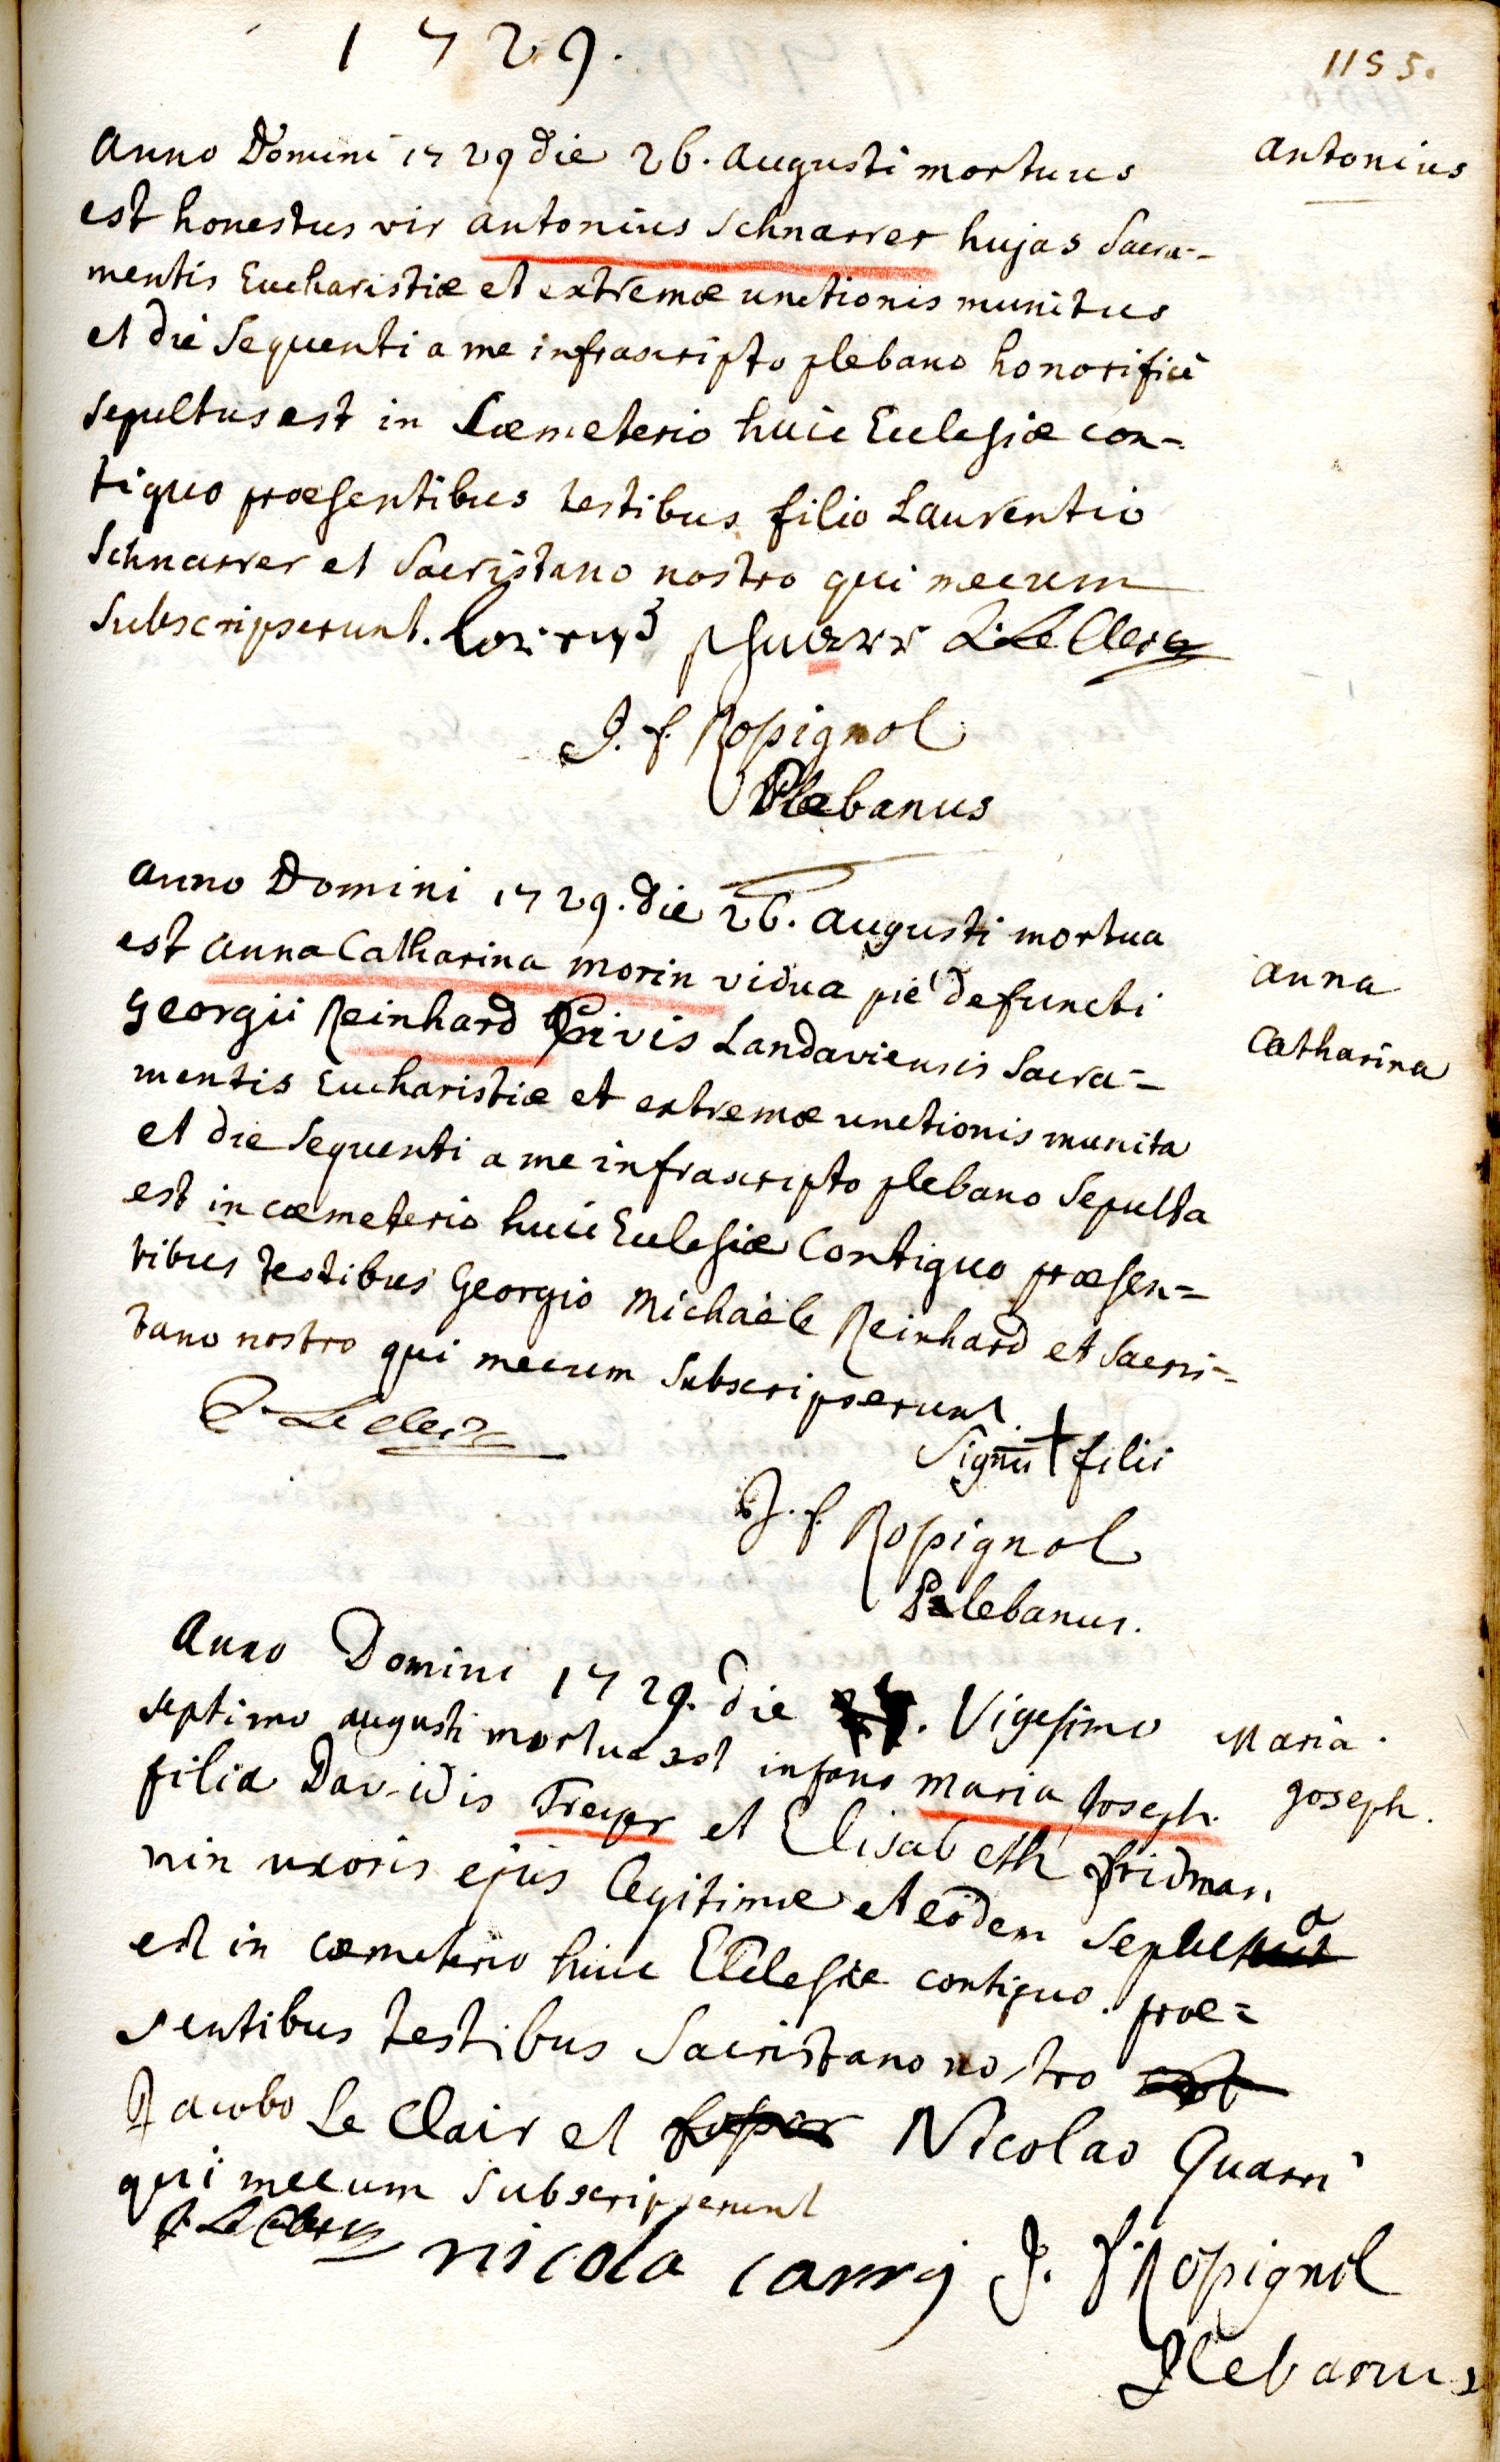 1729.
1155.
Anno Domini 1729 die 26. Augusti mortuus
Antonius
est honestus vir Antonius Schnarrer hujas Sacra=
mentis Eucharistiæ et extremæ unctionis munitus
et die sequenti a me infrascripto plebano honorificè
sepultus est in Cœmeterio huic Ecclesiæ con=
tiguo præsentibus testibus filio Laurentio
Schnarrer et Sacristano nostro qui mecum
subscripserunt. J. Le Clerq
J. f. Rossignol
Plebanus
Anno Domini 1729. die 26. Augusti mortua
est Anna Catharina Morin vidua piè defuncti
Anna
Georgii Reinhard Civis Landaviensis Sacra=
Catharina
mentis Eucharistiæ et extremæ unctionis munita
et die sequenti a me infrascripto plebano sepulta
est in cœmeterio huic Ecclesiæ Contiguo præsen=
tibus testibus Georgio Michaële Reinhard et Sacris=
tano nostro qui mecum subscripserunt.
J. Le Clerq
Signū + filii
J. f. Rossignol
Plebanus.
Anno Domini 1729. die Vigesimo
septimo augusti mortua est infans Maria Joseph.
Maria.
Joseph.
filia Davidis Treyer et Elisabeth fridman
nin uxoris ejus legitimæ et eodem sepulta
est in cœmeterio huic Ecclesiæ contiguo. præ=
sentibus testibus Sacristano nostro
Jacobo Le Clair et Nicolao Quarri
qui mecum subscripserunt
J. Le Clerq nicola carrij J. f. Rossignol
Plebanus